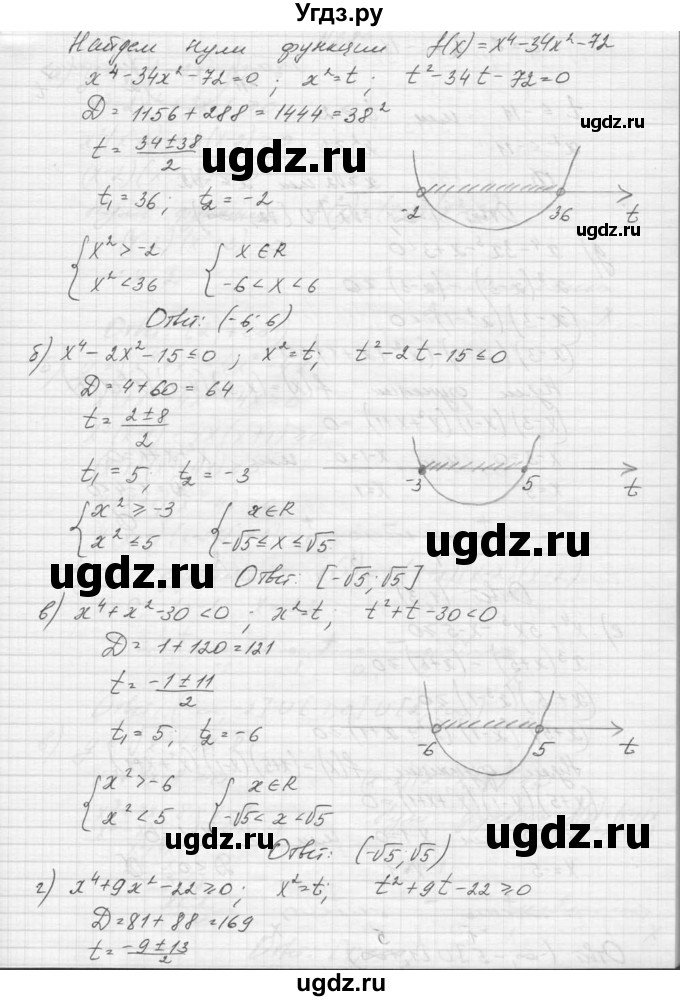 Угдз.ру
Найдем нули функции f(x)=x⁴-34x²-72
x⁴-34x²-72=0; x²=t; t²-34t-72=0
D=1156+288=1444=38²
ugdz.ru
t=(34±38)/2
ugdz.ru
t₁=36; t₂=-2
-2 36 t
ugdz.ru
{x²>-2 {x∈R
{x²<36 {-6<x<6
Ответ: (-6; 6)
б) x⁴-2x²-15≤0; x²=t; t²-2t-15≤0
D=4+60=64
t=(2±8)/2
ugdz.ru
t₁=5, t₂=-3
-3 5 t
{x²≥-3 {x∈R
{x²≤5 {-√5≤x≤√5
ugdz.ru
ugdz.ru
Ответ: [-√5; √5]
в) x⁴+x²-30<0; x²=t; t²+t-30<0
D=1+120=121
t=(-1±11)/2
t₁=5; t₂=-6
-6 5 t
{x²>-6 {x∈R
{x²<5 {-√5<x<√5
ugdz.ru
ugdz.ru
Ответ: (-√5, √5)
г) x⁴+9x²-22≥0; x²=t; t²+9t-22≥0
D=81+88=169
t=(-9±13)/2
ugdz.ru
ugdz.ru
ugdz.ru